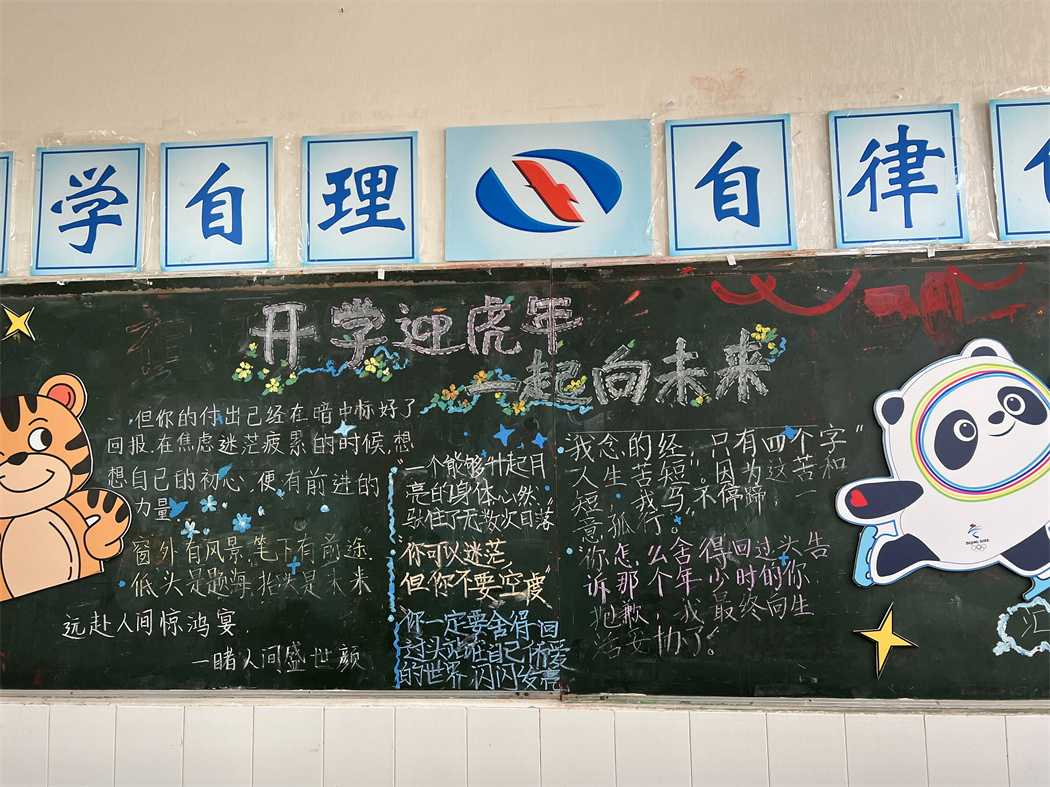 学自理
自律
开学迎虎年
一起向未来
但你的付出已经在暗中标好了
回报.在焦虑迷茫疲累的时候,想
想自己的初心 便有前进的
力量
窗外有风景,笔下有前途
低头是题海,抬头是未来
远赴人间惊鸿宴,
一睹人间盛世颜
一个能够升起月
亮的身体,必然
驮住了无数次日落
你可以迷茫,
但你不要空虚”
你一定要舍得回
的世界 闪闪发亮
“我念的经,只有四个字”
人生苦短”。因为这苦和
短,我马不停蹄,一
意孤行。”
你怎么舍得回过头告
诉那个年少时的你
抱歉,我最终向生
活妥协了”
BEIJING 2022